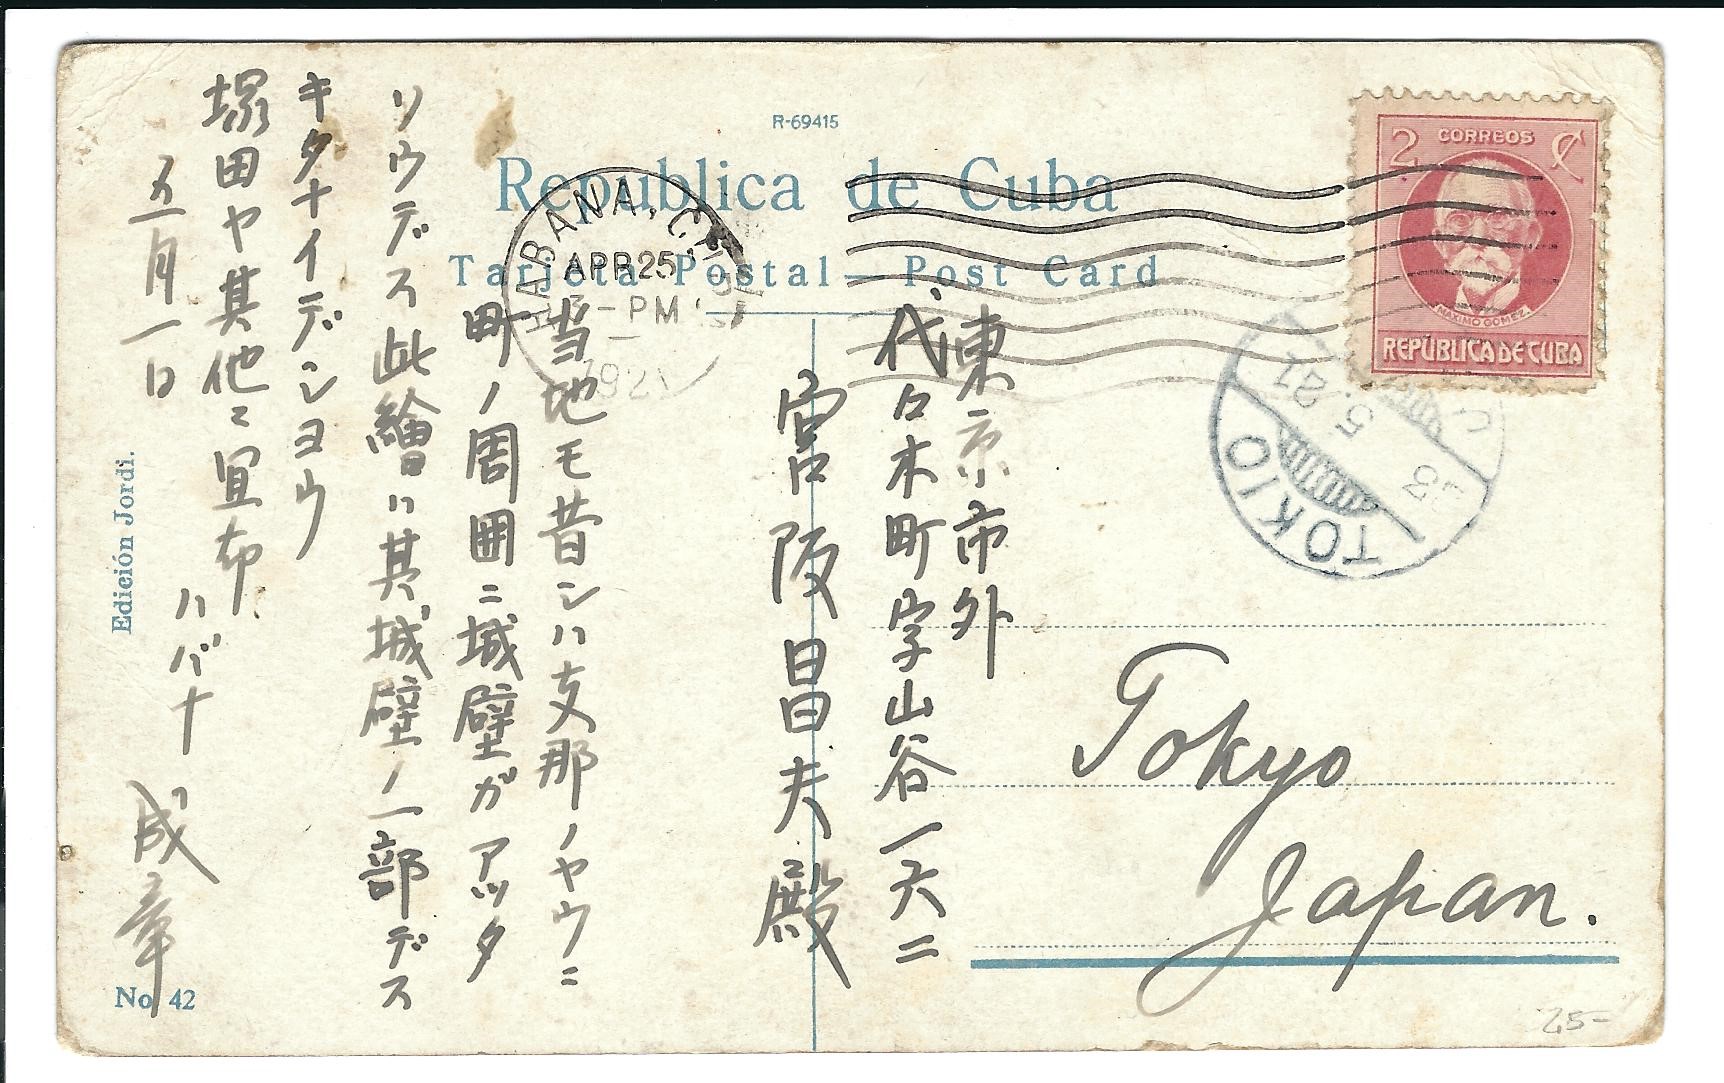 R-69415
República de Cuba
Tarjeta Postal — Post Card
HABANA, CUBA
APR 25
3 - PM
1921
2 CORREOS ¢
MAXIMO GOMEZ.
REPÚBLICA DE CUBA
TOKIO
23.5.21
東京市外
代々木町字山谷一六二
宮阪昌夫殿
Tokyo
Japan.
当地モ昔シハ支那ノヤウニ
町ノ周囲ニ城壁ガアッタ
ソウデス此繪ハ其城壁ノ一部デス
キタナイデショウ
塚田ヤ其他ニ宜布
五月一日
ハバナ
成章
Edición Jordi.
No 42
25-